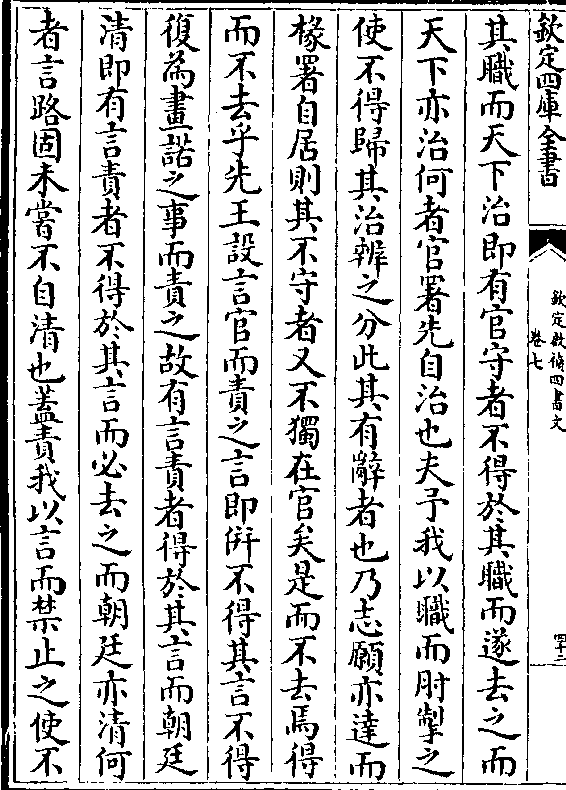 欽定四庫全書
欽定啟禎四書文
卷七
四十三
其職而天下治即有官守者不得於其職而遂去之而
天下亦治何者官署先自治也夫予我以職而肘掣之
使不得歸其治辨之分此其有辭者也乃志願亦達而
椽署自居則其不守者又不獨在官矣是而不去焉得
而不去乎先王設言官而責之言即併不得其言不得
復為畫諾之事而責之故有言責者得於其言而朝廷
清即有言責者不得於其言而必去之而朝廷亦清何
者言路固未嘗不自清也蓋責我以言而禁止之使不